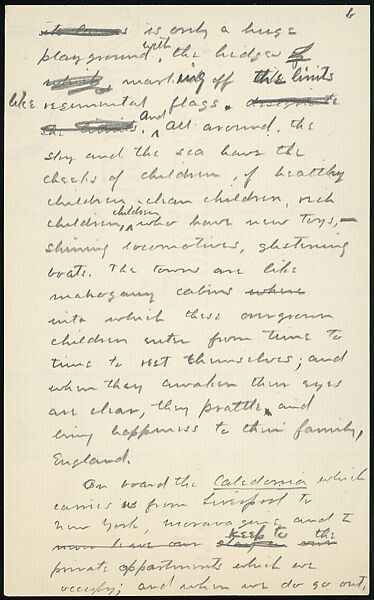 is only a huge
playground, with the hedges
marking off the limits
like regimental flags.
And all around, the
sky and the sea have the
cheeks of children, of healthy
children, clean children, rich
children, children who have new toys, —
shining locomotives, glistening
boats. The towns are like
mahogany cabins where
into which these overgrown
children enter from time to
time to rest themselves; and
when they awaken their eyes
are clear, they prattle, and
bring happiness to their family,
England.
On board the Caledonia which
carries us from Liverpool to
New York, Moravagine and I
never leave our keep to the
private apartments which we
occupy; and when we do go out,